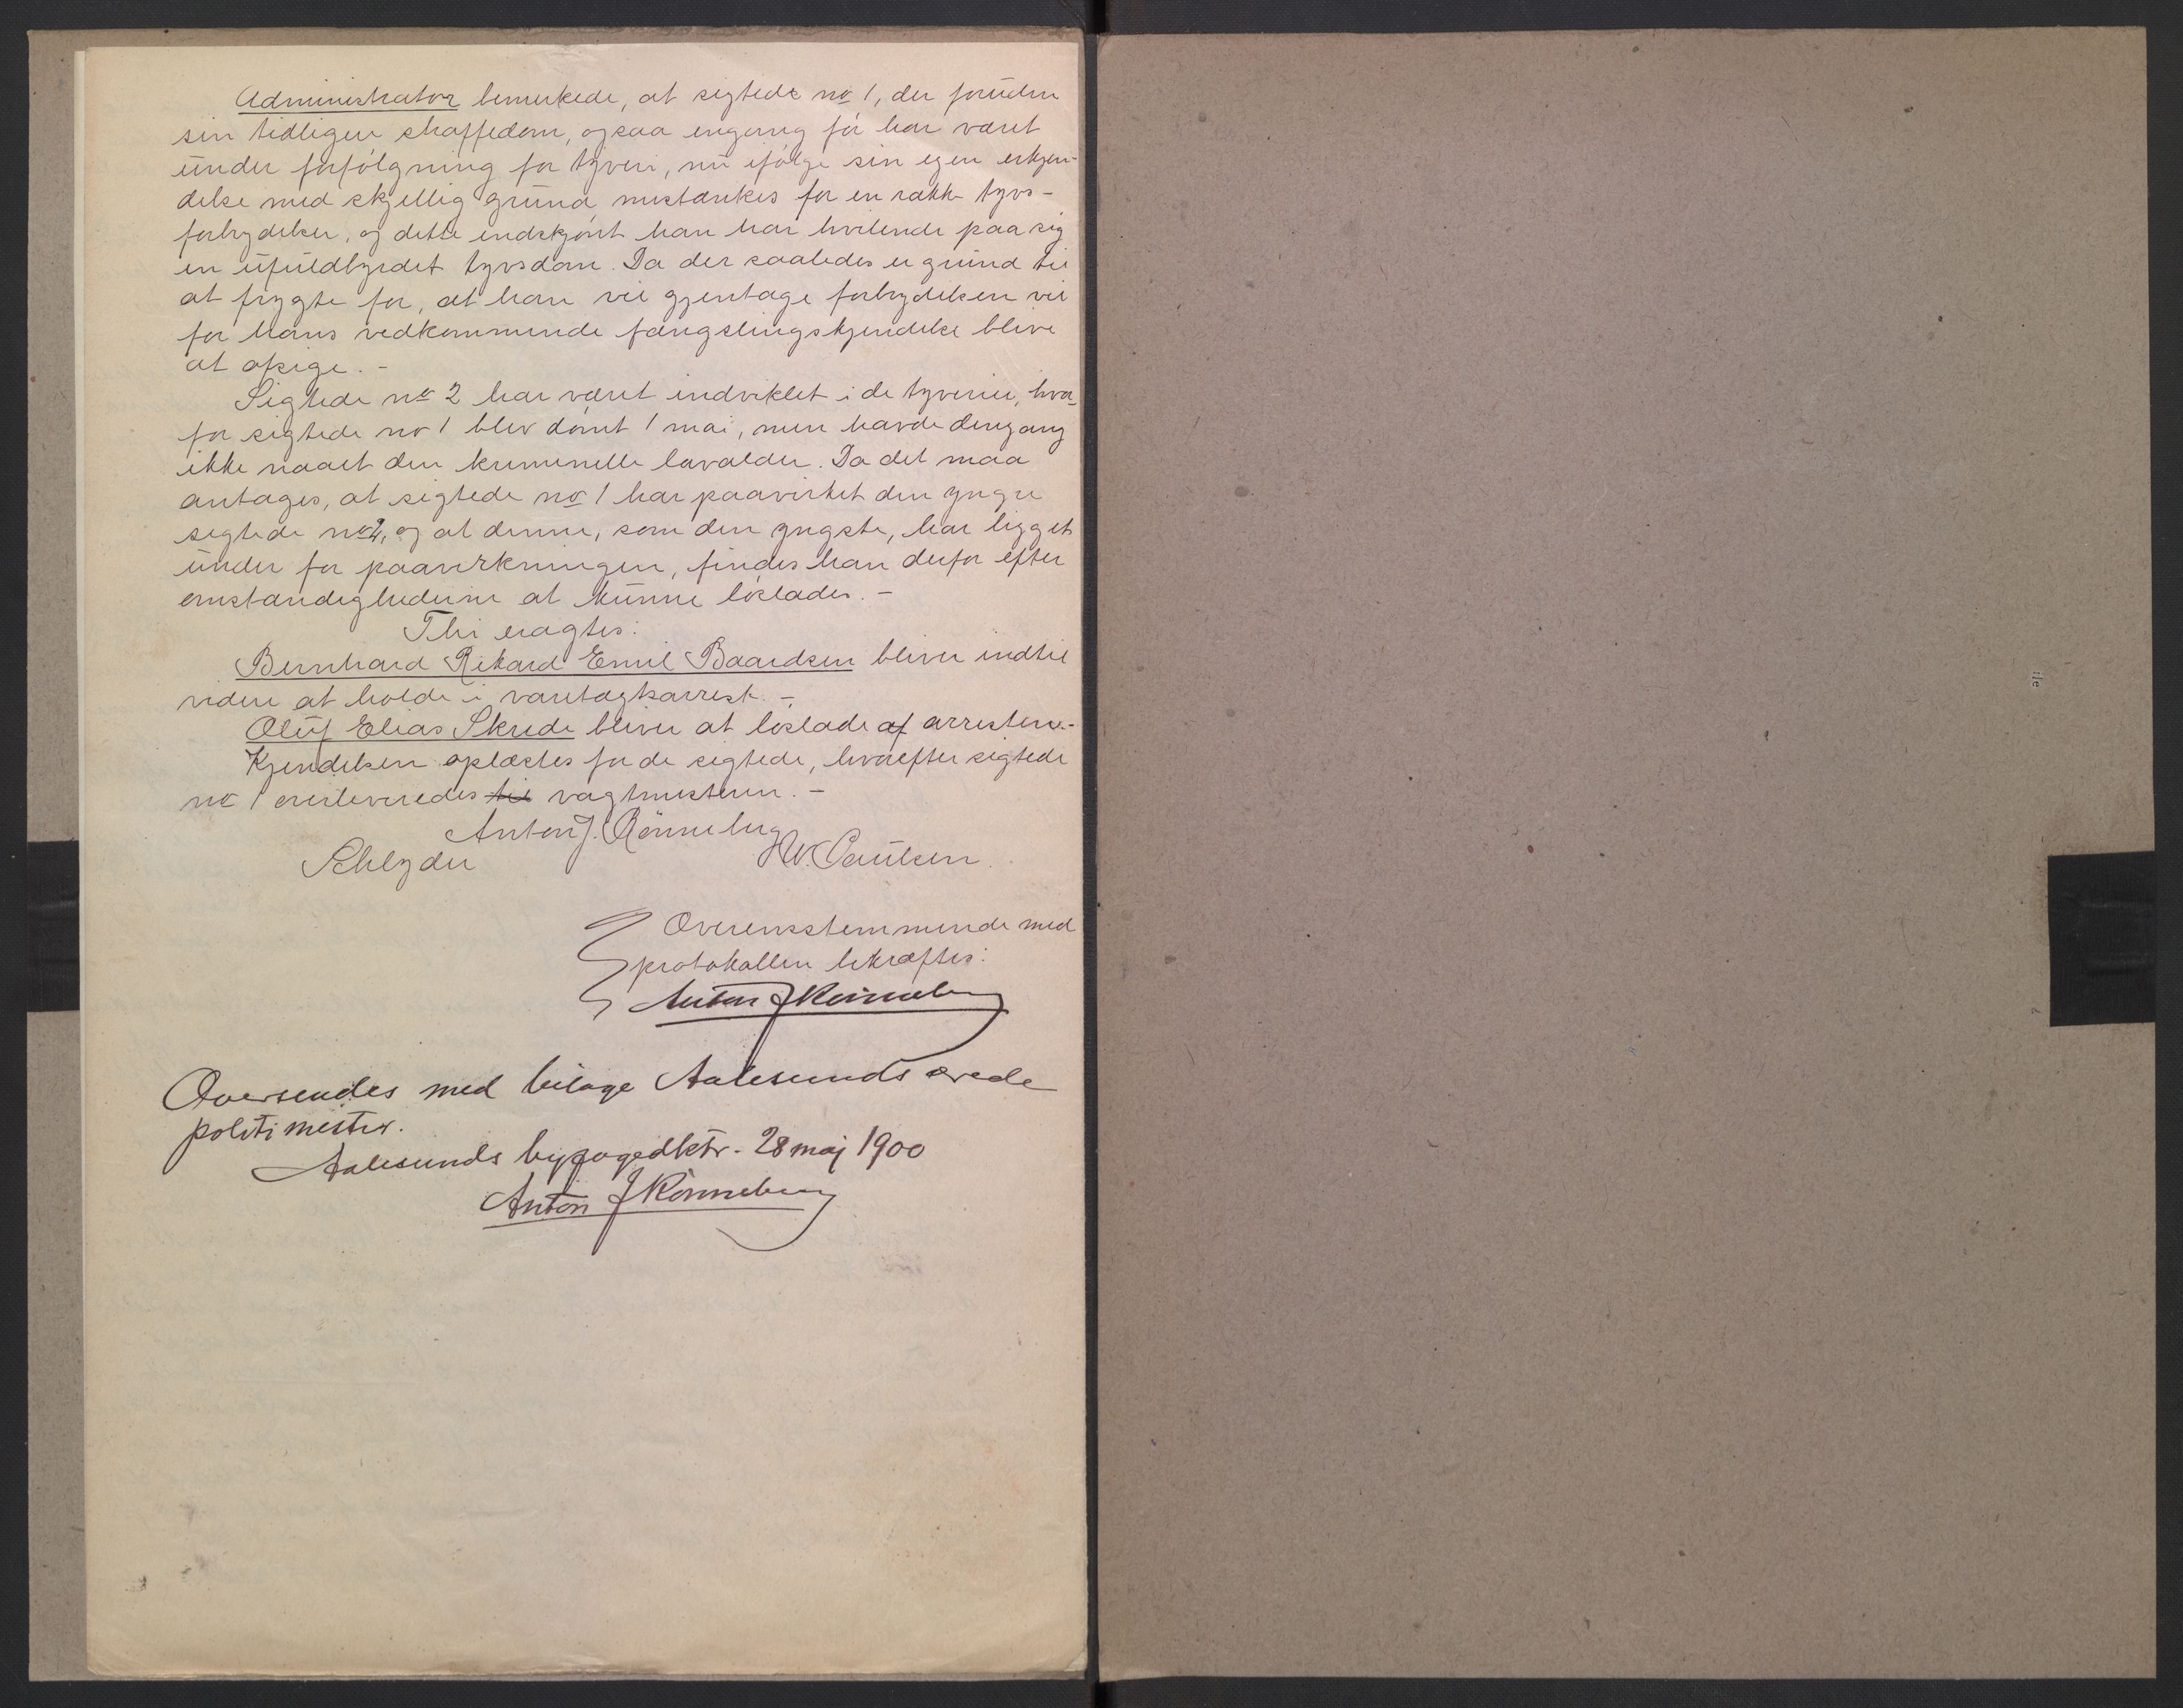 Administrator bemerkede, at sigtede no 1, der foruden
sin tidligere straffedom, ogsaa engang før har været
under forfølgning for tyveri, nu ifølge sin egen erkjen-
delse med skjellig grund mistænkes for en række tyvs-
forbrydelser, og dette endskjønt han har hvilende paa sig
en ufuldbyrdet tyvsdom. Da der saaledes er grund til
at frygte for, at han vil gjentage forbrydelsen vil
for hans vedkommende fængslingskjendelse blive
at afsige. -
Sigtede no 2 har været indviklet i de tyverier, hvor-
for sigtede no 1 blev dømt 1 mai, men havde dengang
ikke naaet den kriminelle lavalder. Da det maa
antages, at sigtede no 1 har paavirket den yngre
sigtede no 2, og at denne, som den yngste, har ligget
under for paavirkningen, findes han derfor efter
omstændighederne at kunne løslades. -
Thi eragtes:
Bernhard Rikard Emil Baardsen bliver indtil
videre at holde i varetægtsarrest. -
Oluf Elias Skrede bliver at løslade af arresten. -
Kjendelsen oplæstes for de sigtede, hvorefter sigtede
no 1 overleveredes til vagtmesteren. -
Anton J. Rønneberg
Schlyder W. Paulsen.
Overensstemmende med
protokollen bekræftes:
Anton J Rønneberg
Oversendes med bilage Aalesunds ærede
politimester.
Aalesunds byfogedktr. 28 maj 1900
Anton J Rønneberg